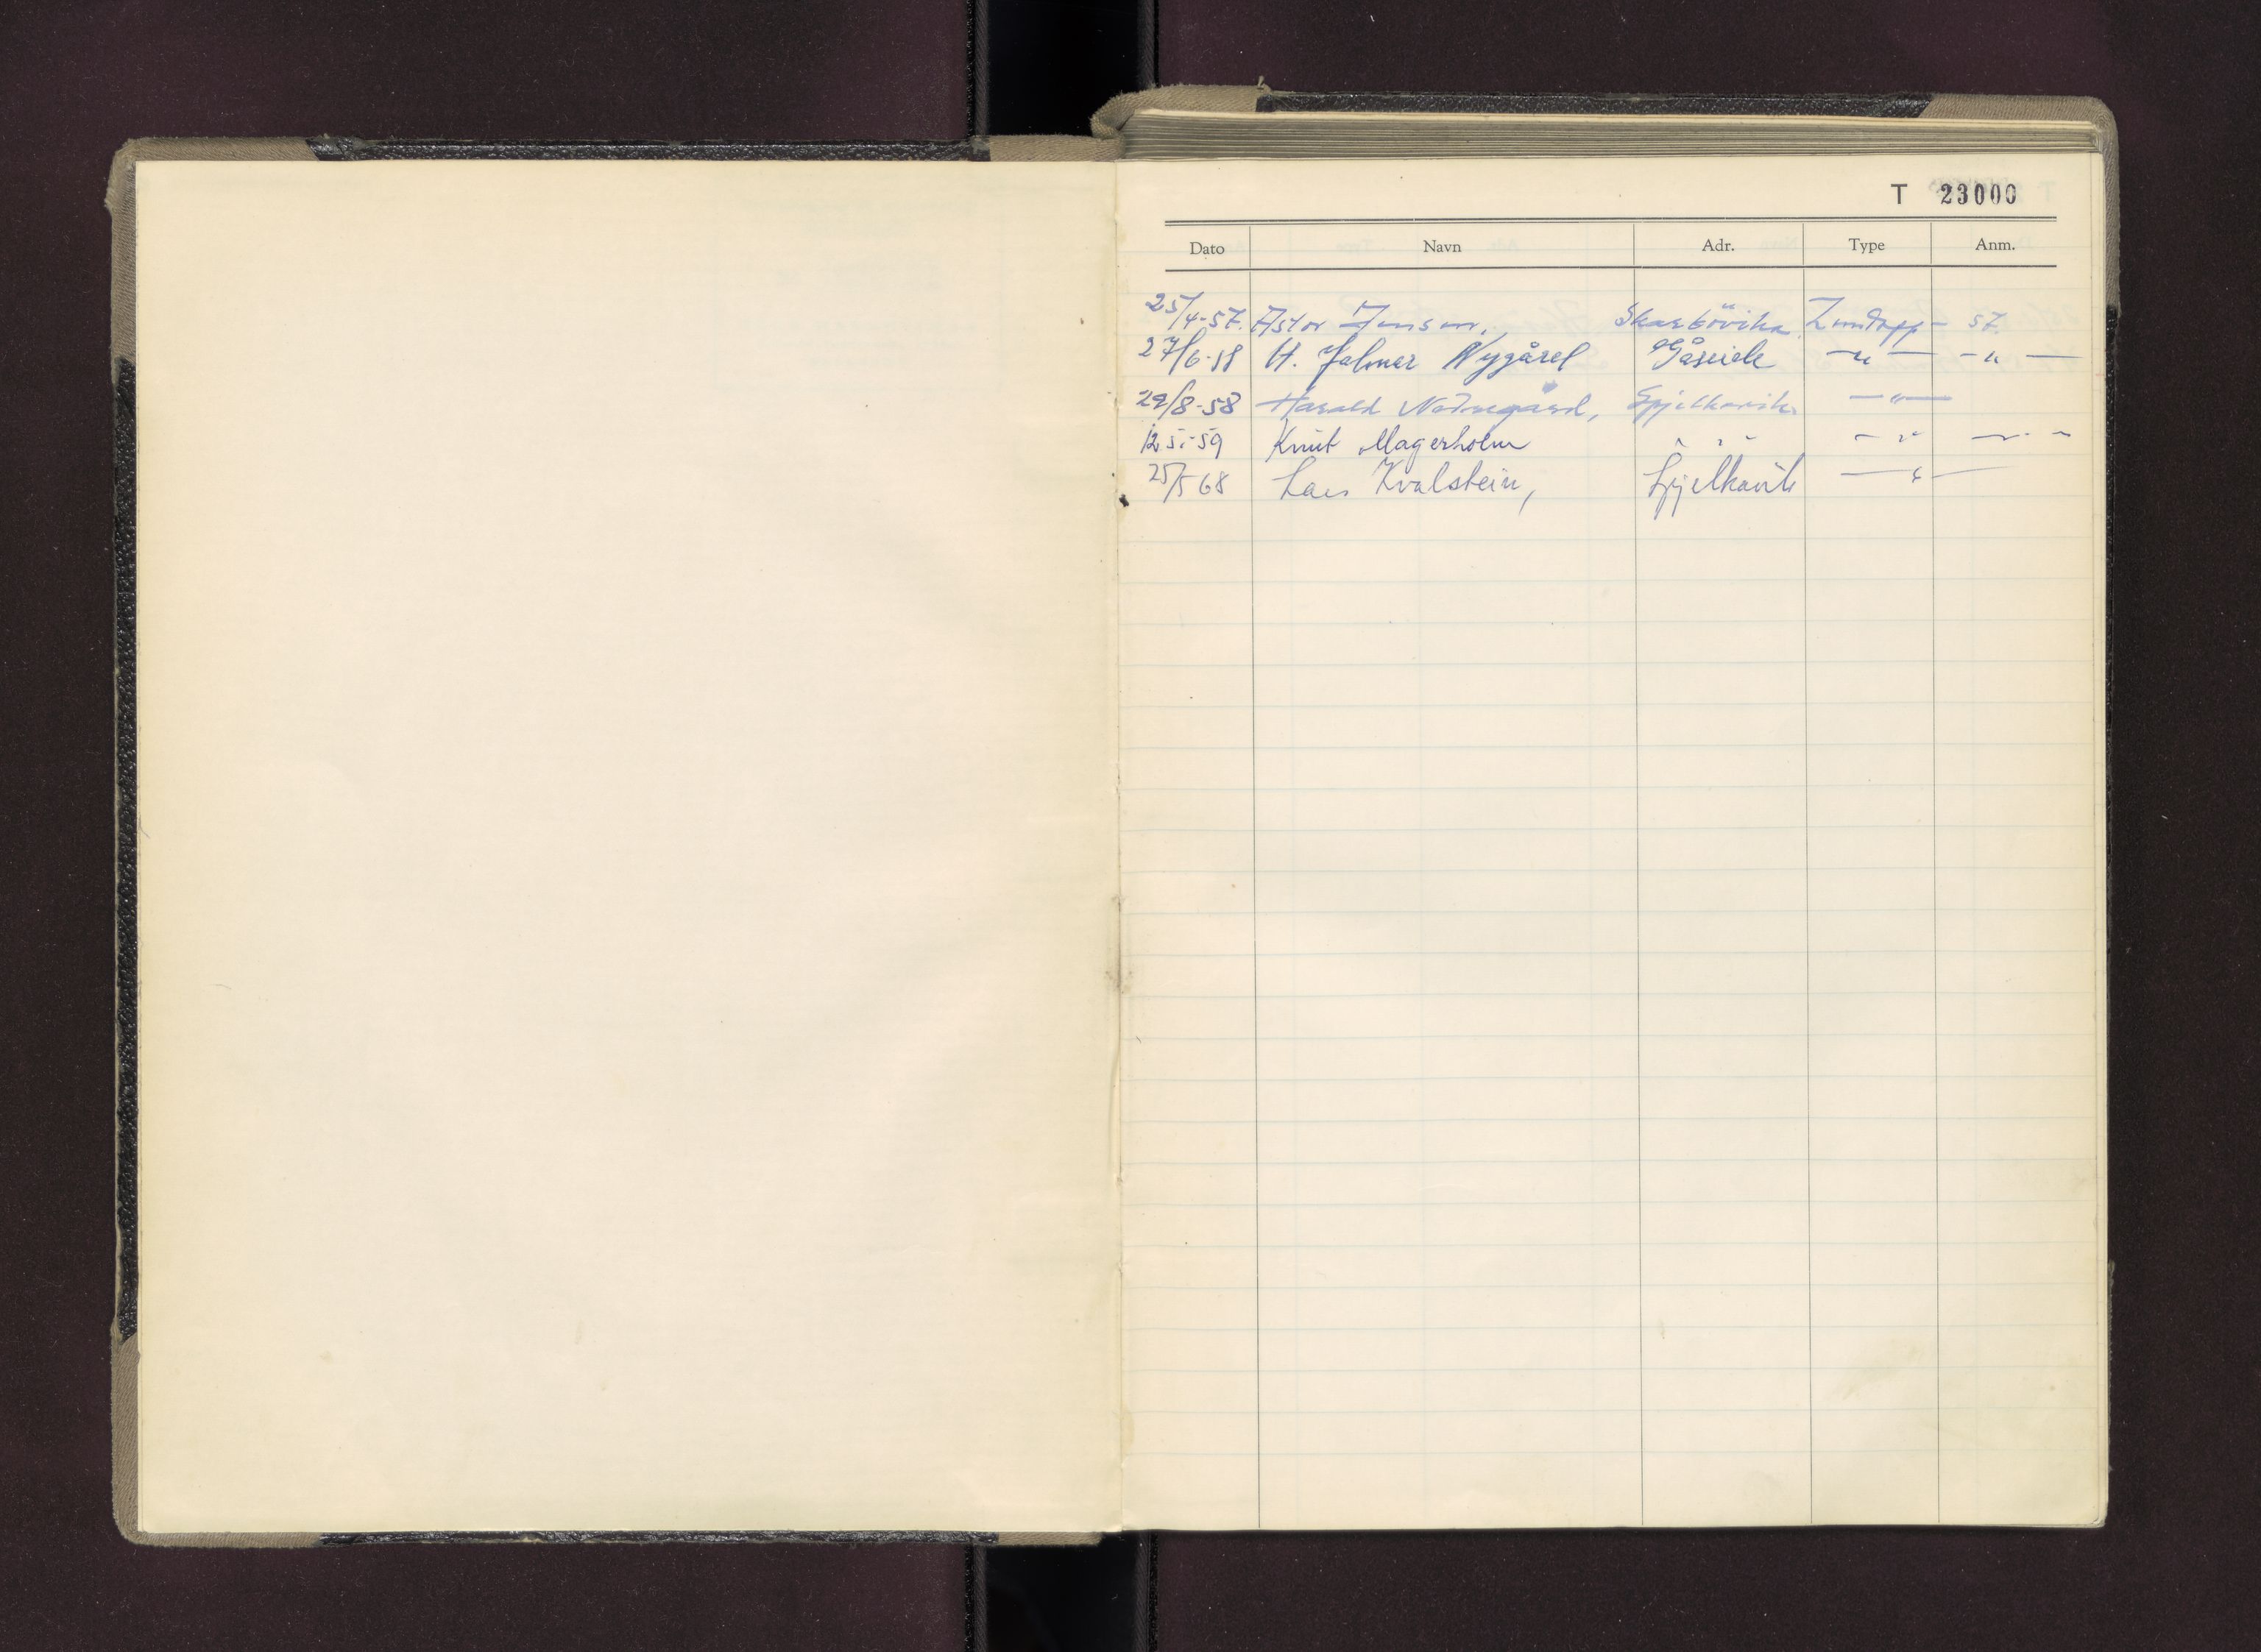 T 23000
Dato Navn Adr. Type Anm.
25/4-57. Astor Jensen. Skarbövika Zundapp - 57.
27/6-58 H. Jalmar Nygård Gåseide -"- -"-
29/8-58 Harald Nedregård, Spjelkavik -"-
12.5.-59 Knut Magerholm " " " -"- -"-
25/5 68 Lars Kvalstein, Spjelkavik -"-